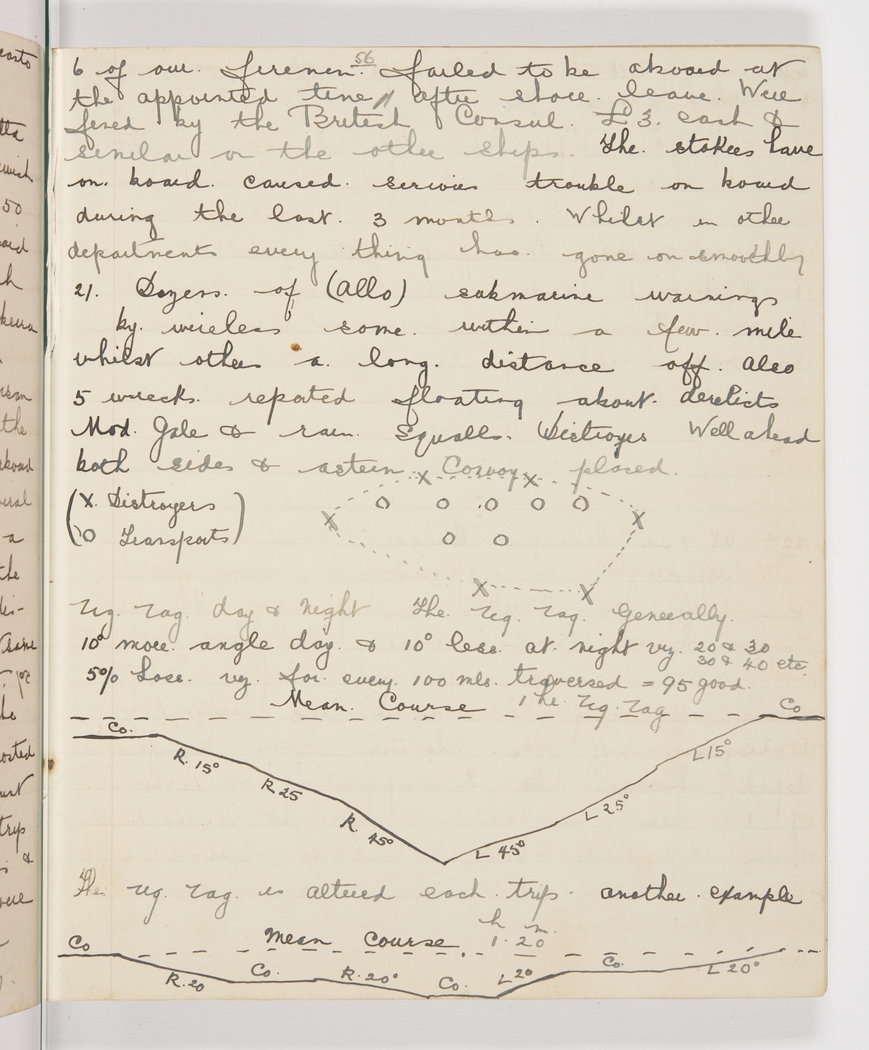 56
6 of our. firemen. failed to be aboard at
the appointed time, after shore. leave. Were
fined by the British Consul. £3. each &
similar on the other ships. The. stokers have
on. board. caused. serious trouble on board
during the last. 3 months. Whilst in other
departments every thing has. gone on smoothly
21. Dozens. of (Allo) submarine warnings
by. wireless some. within a few. mile
whilst others a. long. distance off. Also
5 wrecks. reported floating about. derelicts
Mod. Gale & rain. Squalls. Distroyers Well ahead
both sides & astern. Convoy. placed.
(X. Distroyers
O Transports)
Zig. Zag. day & Night The. Zig. Zag. Generally.
10° more. angle day. & 10° less. at. night viz. 20 & 30
30 & 40 etc.
5% Lose. viz. for. every. 100 mls. traversed = 95 good.
Mean. Course 1 hr. Zig. Zag
Co. Co
R. 15° L 15°
R. 25 L 25°
R. 45° L 45°
The Zig. Zag. is altered each. trip. another. example
Mean Course. 1 h 20 m.
Co
R. 20 Co. R. 20° Co. L 20 Co. L 20°